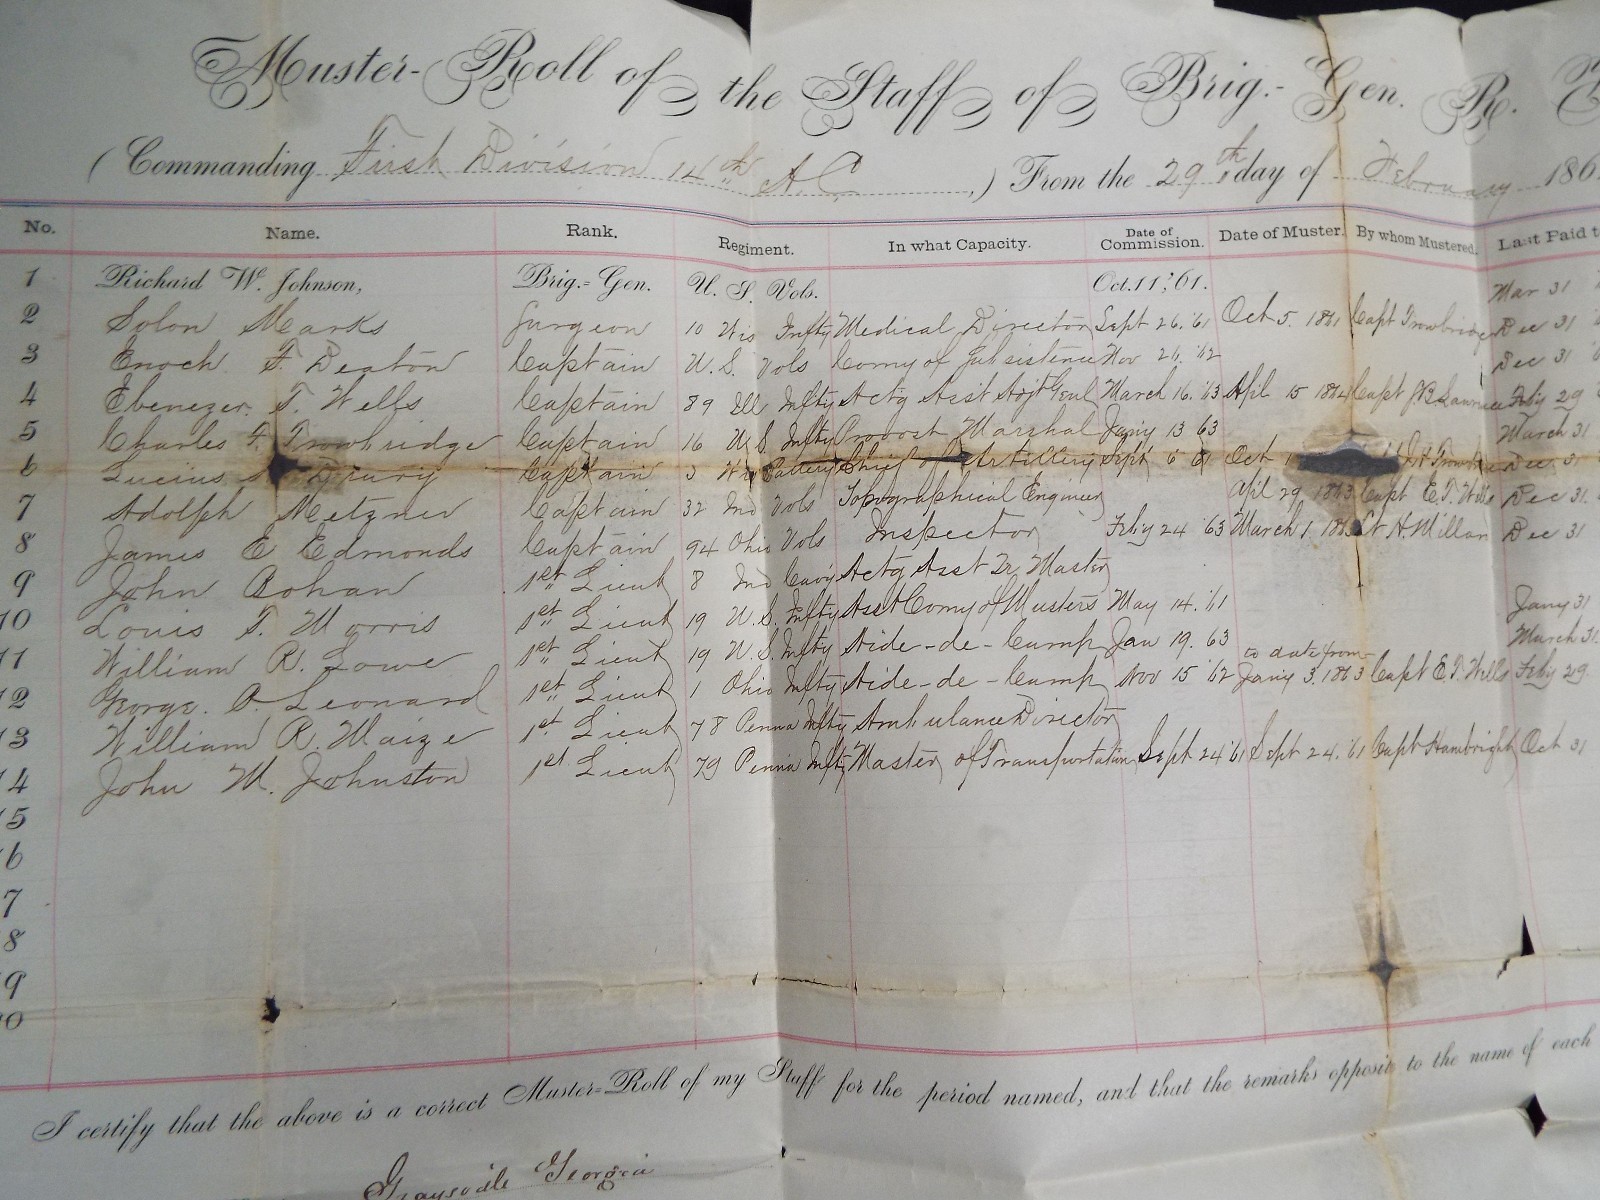 Muster-Roll of the Staff of Brig.-Gen. R.
(Commanding First Division 14th A.C. ,) From the 29th day of February 186
No. Name. Rank. Regiment. In what Capacity. Date of Commission. Date of Muster. By whom Mustered. Last Paid t
1 Richard W. Johnson, Brig.-Gen. U. S. Vols. Oct. 11, '61. Mar 31
2 Solon Marks Surgeon 10 Wis Infty Medical Director Sept 26. '61 Oct 5. 1861 Capt Trowbridge Dec 31
3 Enoch F. Deaton Captain U. S. Vols Comy of Subsistence Nov 26. '62 Dec 31
4 Ebenezer. T. Wells Captain 89 Ill Infty Actg Asst Adjt Genl March 16. '63 Apl 15 1864 Capt J.B. Lawrence Feby 29
5 Charles F. Trowbridge Captain 16 U.S. Infty Provost Marshal Jany 13 63 March 31
6 Lucius Drury Captain 3 Wis Battery Chief of Artillery Sept 6 61 Oct 1 Dec 31
7 Adolph Metzner Captain 32 Ind Vols Topographical Engineer Apl 29. 1863 Capt E.T. Wells Dec 31.
8 James E Edmonds Captain 94 Ohio Vols Inspector Feby 24 '63 March 1. 1863 Lt H. Millan Dec 31
9 John Bohan 1st Lieut 8 Ind Cavy Actg Asst Qr. Master
10 Louis T. Morris 1st Lieut 19 U.S. Infty Asst Comy of Musters May 14. '61 Jany 31
11 William R. Lowe 1st Lieut 19 U.S. Infty Aide-de-Camp Jan 19. 63 March 31.
12 George. A. Leonard 1st Lieut 1 Ohio Infty Aide-de-Camp Nov 15 '62 to date from Jany 3. 1863 Capt E.T. Wells Feby 29.
13 William R. Maize 1st Lieut 78 Penna Infty Ambulance Director
14 John M. Johnston 1st Lieut 79 Penna Infty Master of Transportation Sept 24 '61 Sept 24. '61 Capt Hambright Oct 31
15
16
17
18
19
20
I certify that the above is a correct Muster-Roll of my Staff for the period named, and that the remarks opposite to the name of each
Graysville Georgia